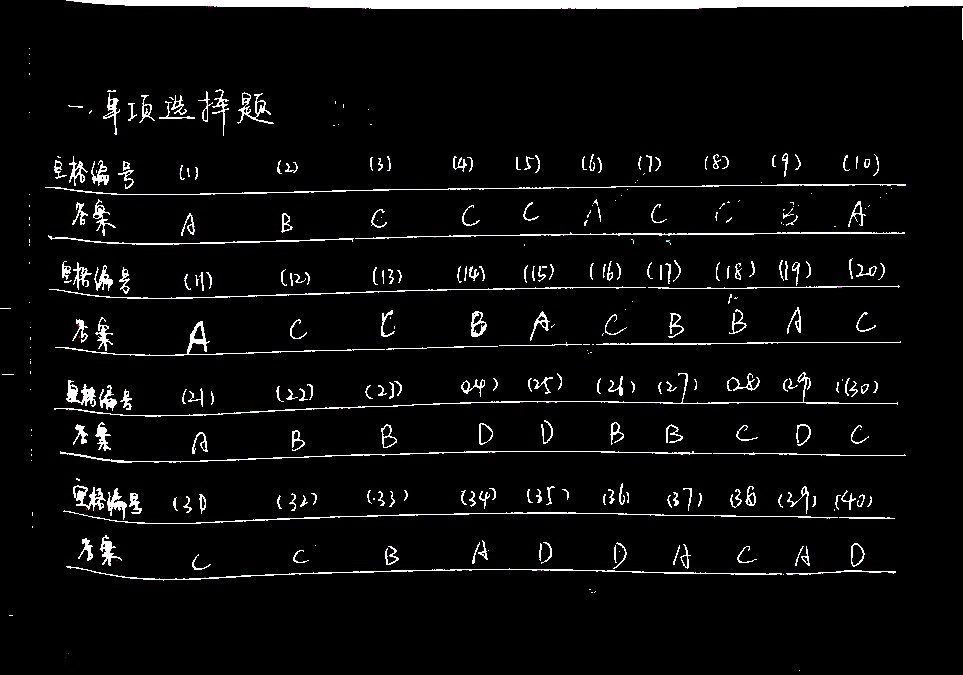 一.单项选择题
空格编号 (1) (2) (3) (4) (5) (6) (7) (8) (9) (10)
答案 A B C C C A C C B A
空格编号 (11) (12) (13) (14) (15) (16) (17) (18) (19) (20)
答案 A C C B A C B B A C
空格编号 (21) (22) (23) (24) (25) (26) (27) (28) (29) (30)
答案 A B B D D B B C D C
空格编号 (31) (32) (33) (34) (35) (36) (37) (38) (39) (40)
答案 C C B A D D A C A D